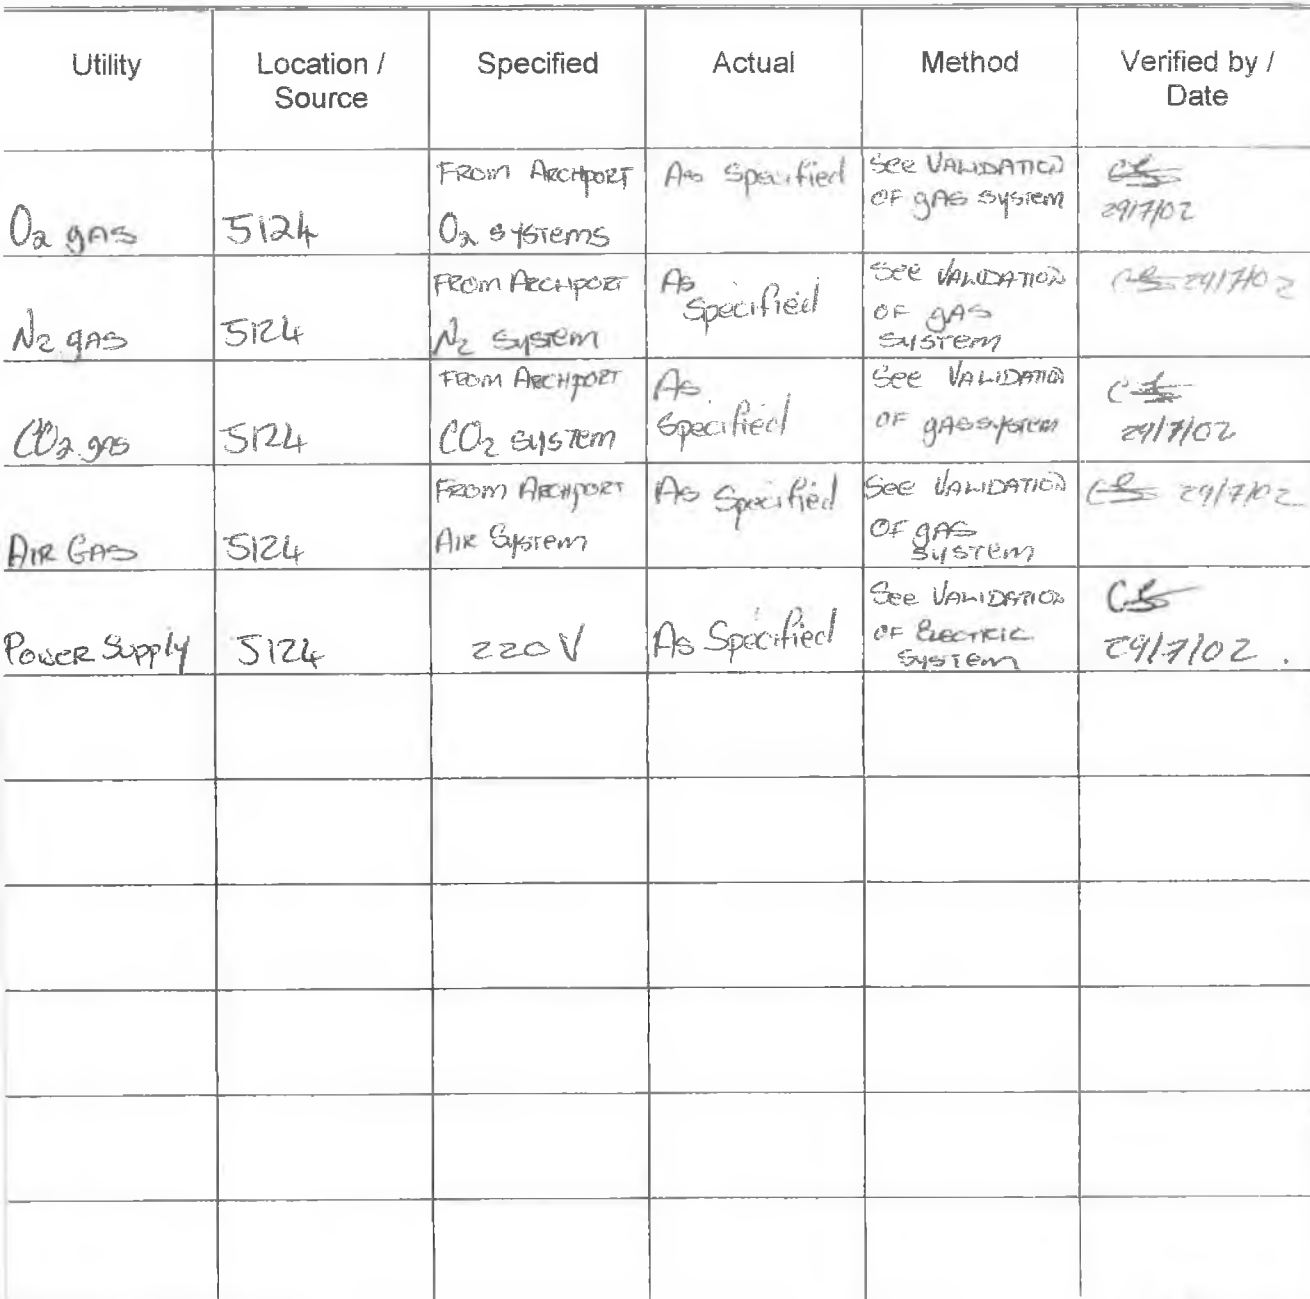 Utility
Location /
Source
Specified
Actual
Method
Verified by /
Date
O2 gAS
5124
FROM ARCHPORT
O2 SYSTEMS
As Specified
See VALIDATION
OF gAS system
29/7/02
N2 gAS
5124
FROM ARCHPORT
N2 SYSTEM
As
Specified
See VALIDATION
OF gAS
SYSTEM
29/7/02
CO2 gAS
5124
FROM ARCHPORT
CO2 SYSTEM
As
Specified
See VALIDATION
OF gAS SYSTEM
29/7/02
AIR GAS
5124
FROM ARCHPORT
AIR SYSTEM
As Specified
See VALIDATION
OF gAS
SYSTEM
29/7/02
Power Supply
5124
220V
As Specified
See VALIDATION
OF ELECTRIC
SYSTEM
29/7/02.